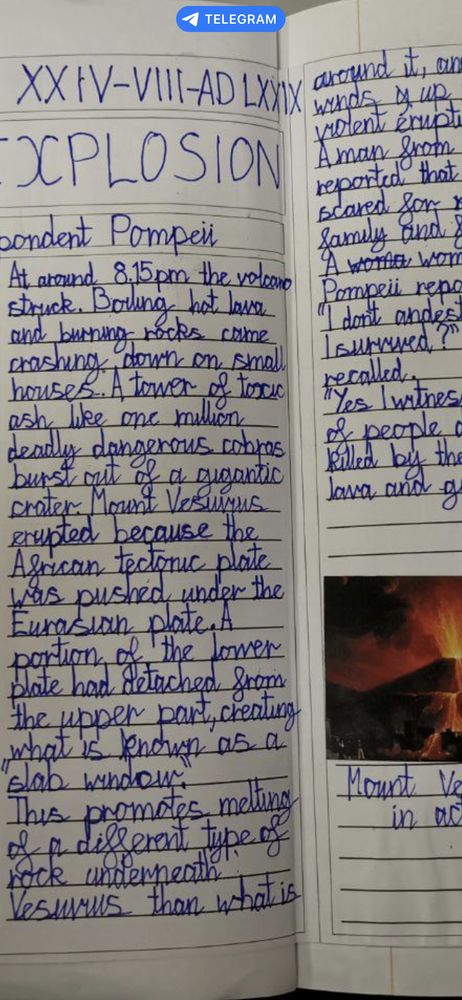 TELEGRAM
XXIV-VIII-AD LXXIX
EXPLOSION
pondent Pompeii
At around 8.15pm the volcano
struck. Boiling hot lava
and burning rocks came
crashing down on small
houses. A tower of toxic
ash like one million
deadly dangerous cobras
burst out of a gigantic
crater. Mount Vesuvius
erupted because the
African tectonic plate
was pushed under the
Eurasian plate. A
portion of the lower
plate had detached from
the upper part, creating
what is known as a
"slab window."
This promotes melting
of a different type of
rock underneath
Vesuvius than what is
around it, an
winds up
violent erupti
A man from
reported that
scared for
family and
A woma wom
Pompeii repo
"I dont
I survived?"
recalled.
"Yes I witnes
of people
killed by the
lava and g
Mount Ve
in act